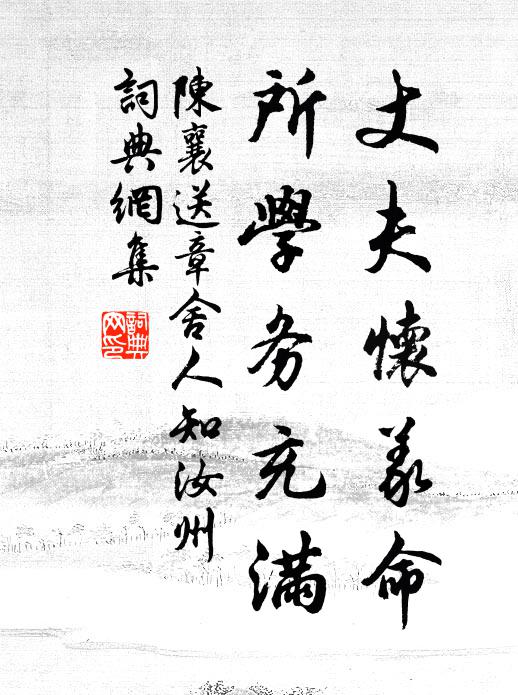 丈夫懷義命
所學务充满
陳襄送章舍人知汝州
詞典網集
詞典
网印